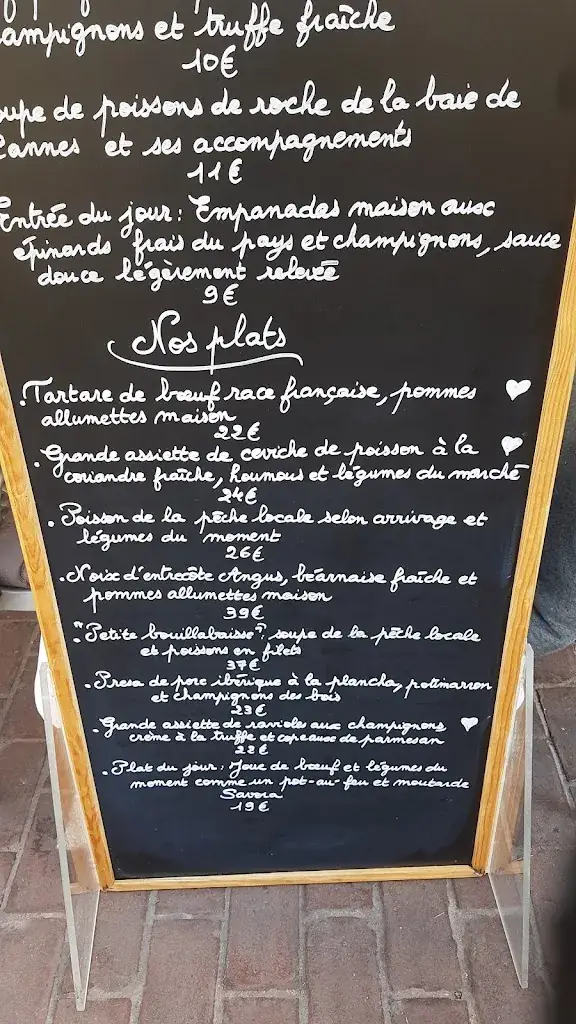 ampignons et truffe fraîche
10€
oupe de poissons de roche de la baie de
Cannes et ses accompagnements
11€
Entrée du jour: Empanadas maison aux
épinards frais du pays et champignons, sauce
douce légèrement relevée
9€
Nos plats
.Tartare de bœuf race française, pommes
allumettes maison
22€
. Grande assiette de ceviche de poisson à la
coriandre fraîche, houmous et légumes du marché
24€
. Poisson de la pêche locale selon arrivage et
légumes du moment
26€
. Noix d'entrecôte Angus, béarnaise fraîche et
pommes allumettes maison
39€
. "Petite bouillabaisse": soupe de la pêche locale
et poissons en filets
37€
. Presa de porc ibérique à la plancha, potimarron
et champignons des bois
23€
. Grande assiette de ravioles aux champignons
crème à la truffe et copeaux de parmesan
22€
. Plat du jour: Joue de bœuf et légumes du
moment comme un pot-au-feu et moutarde
Savora
19€